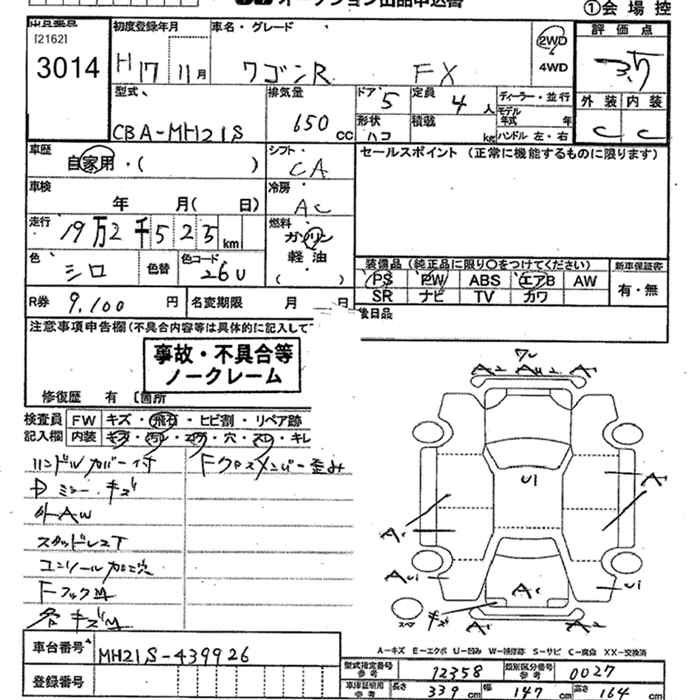 オークション出品申込書
①会場控
[2162]
3014
初度登録年月
H17 11月
車名・グレード
ワゴンR FX
2WD
4WD
評価点
3.5
外装 内装
C C
型式
CBA-MH21S
排気量
650 CC
ドア 5
形状 ハコ
定員 4 人
積載 kg
ディーラー・並行
モデル年式 年
ハンドル 左・右
車歴
自家用・( )
シフト
CA
セールスポイント (正常に機能するものに限ります)
車検
年 月( 日)
冷房
AC
走行
19万2千525km
燃料
ガソリン
軽油
( )
色 シロ
色替
色コード 26U
装備品(純正品に限り〇をつけてください)
新車保証書
PS PW ABS エアB AW
SR ナビ TV カワ
有・無
R券 9,100 円
名変期限 月 日
後日品
注意事項申告欄(不具合内容等は具体的に記入して
事故・不具合等
ノークレーム
修復歴 有 [箇所
検査員
記入欄
FW キズ・飛石・ヒビ割・リペア跡
内装 キズ・汚れ・コゲ・穴・スレ・キレ
ハンドルカバー付
Fクロスメンバー歪み
Dミラーキズ
外AW
スタッドレスT
コンソール加工穴
FフックM
各キズM
A2 AU2 A1
U1
A1
A1
AU1
U1
A1
スペア
キズ
A-キズ E-エクボ U-凹み W-補修跡 S-サビ C-腐食 XX-交換済
車台番号
MH21S-439926
登録番号
型式指定番号
参考
12358
類別区分番号
参考
0027
車庫証明用
参考
長さ 339 cm
幅 147 cm
高さ 164 cm